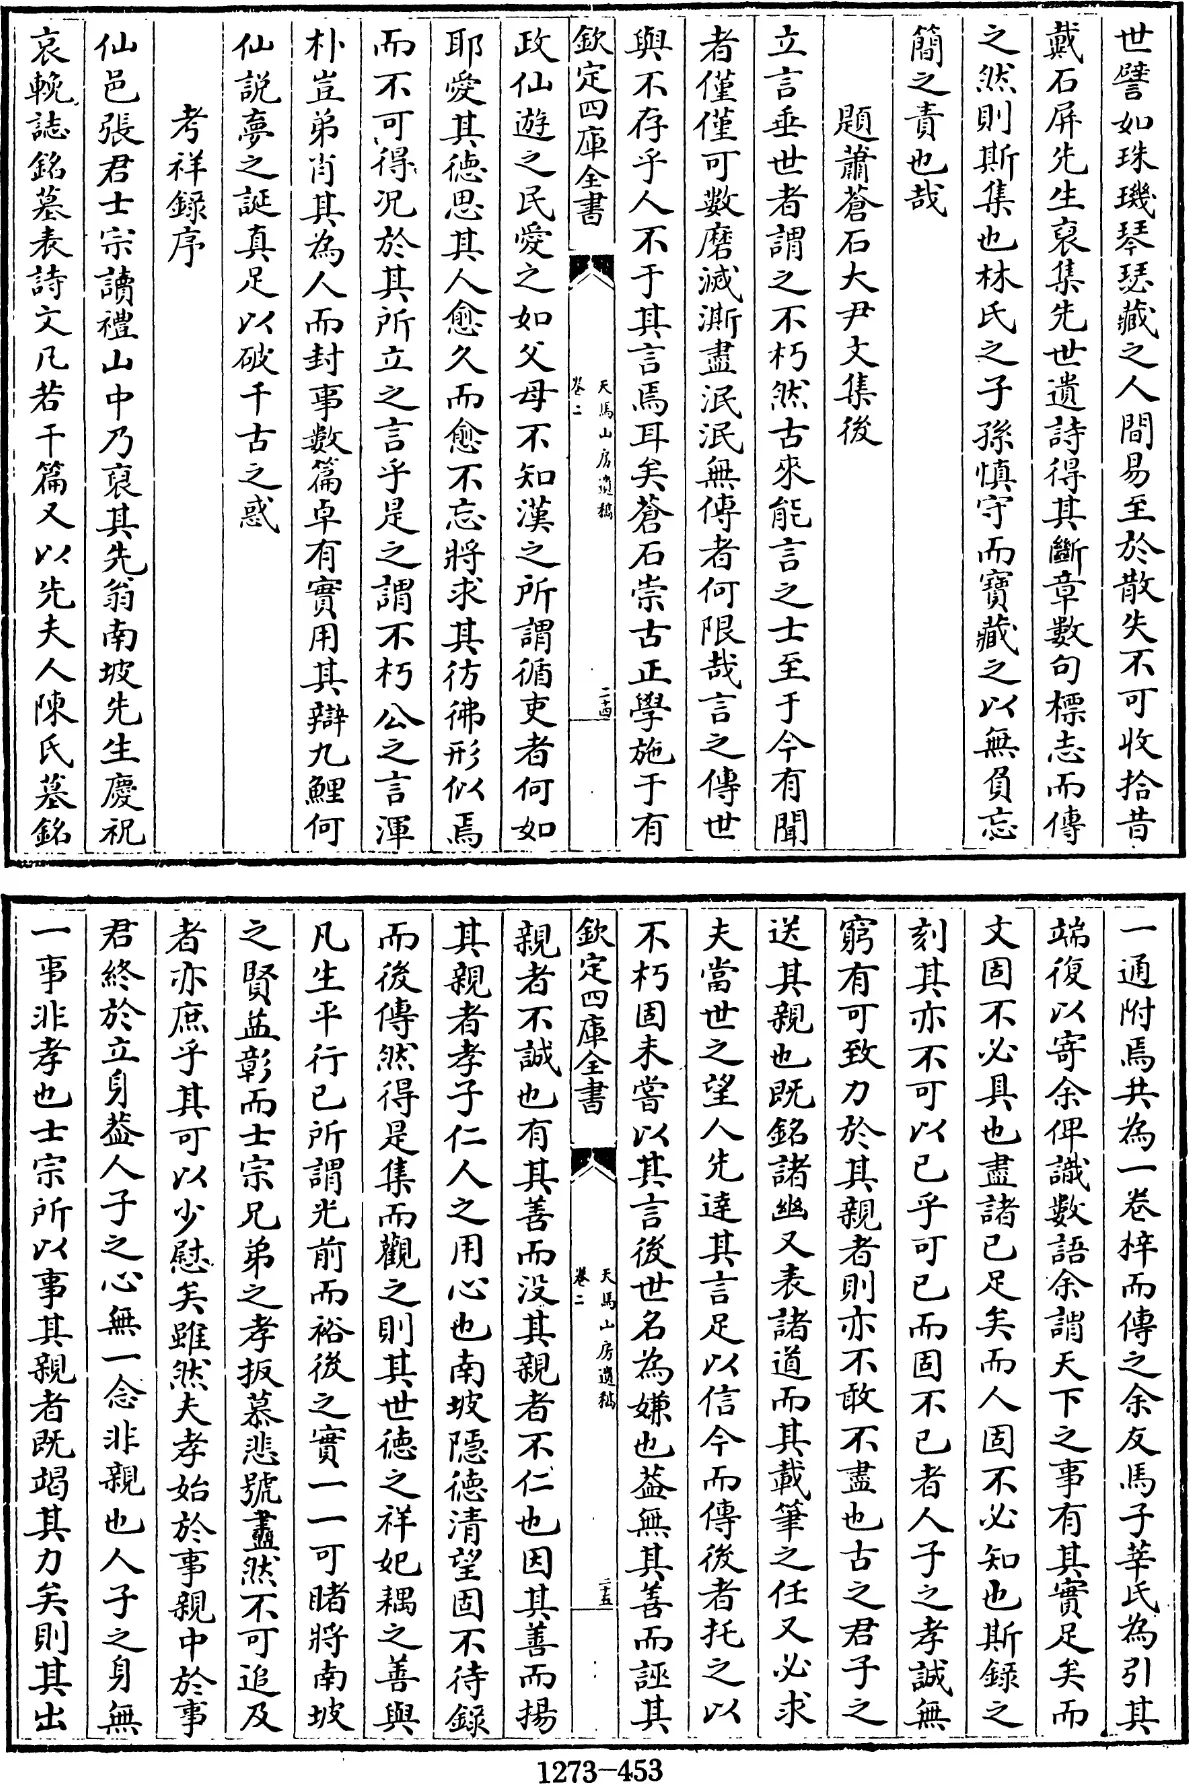 世譬如珠璣琴瑟藏之人間易至於散失不可收拾昔
戴石屏先生裒集先世遺詩得其斷章數句標志而傳
之然則斯集也林氏之子孫慎守而寶藏之以無負忘
簡之責也哉
題蕭蒼石大尹文集後
立言垂世者謂之不朽然古來能言之士至于今有聞
者僅僅可數磨滅澌盡泯泯無傳者何限哉言之傳世
與不存乎人不于其言焉耳矣蒼石崇古正學施于有
欽定四庫全書
天馬山房遺稿
卷二
二十四
政仙遊之民愛之如父母不知漢之所謂循吏者何如
耶愛其德思其人愈久而愈不忘將求其彷彿形似焉
而不可得況於其所立之言乎是之謂不朽公之言渾
朴豈弟肖其為人而封事數篇卓有實用其辯九鯉何
仙說夢之誕真足以破千古之惑
考祥錄序
仙邑張君士宗讀禮山中乃裒其先翁南坡先生慶祝
哀輓誌銘墓表詩文凡若干篇又以先夫人陳氏墓銘
一通附焉共為一卷梓而傳之余友馬子莘氏為引其
端復以寄余俾識數語余謂天下之事有其實足矣而
文固不必具也盡諸己足矣而人固不必知也斯錄之
刻其亦不可以已乎可已而固不已者人子之孝誠無
窮有可致力於其親者則亦不敢不盡也古之君子之
送其親也既銘諸幽又表諸道而其載筆之任又必求
夫當世之望人先達其言足以信今而傳後者托之以
不朽固未嘗以其言後世名為嫌也葢無其善而誣其
欽定四庫全書
天馬山房遺稿
卷二
二十五
親者不誠也有其善而没其親者不仁也因其善而揚
其親者孝子仁人之用心也南坡隱德清望固不待錄
而後傳然得是集而觀之則其世德之祥妃耦之善與
凡生平行已所謂光前而裕後之實一一可睹將南坡
之賢益彰而士宗兄弟之孝扳慕悲號盡然不可追及
者亦庶乎其可以少慰矣雖然夫孝始於事親中於事
君終於立身葢人子之心無一念非親也人子之身無
一事非孝也士宗所以事其親者既竭其力矣則其出
1273-453